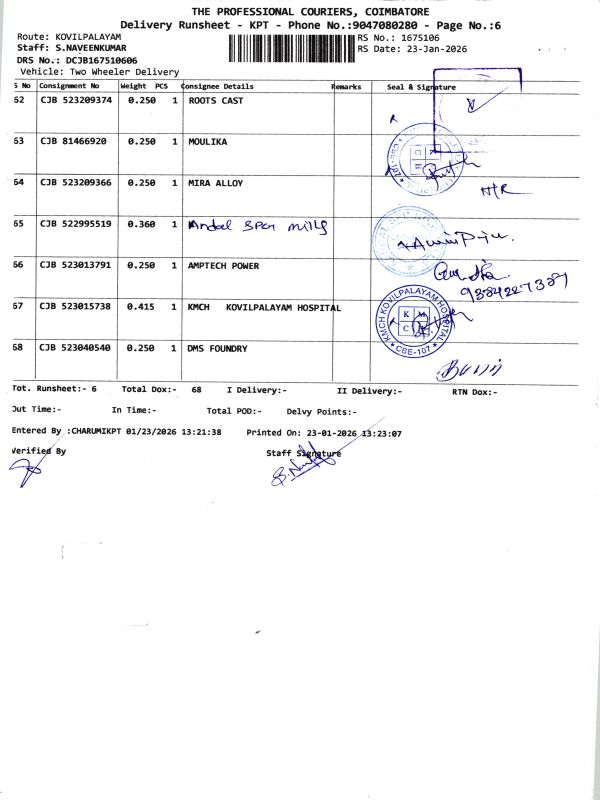 THE PROFESSIONAL COURIERS, COIMBATORE
Delivery Runsheet - KPT - Phone No.:9047080280 - Page No.:6
Route: KOVILPALAYAM
RS No.: 1675106
Staff: S.NAVEENKUMAR
RS Date: 23-Jan-2026
DRS No.: DCJB167510606
Vehicle: Two Wheeler Delivery
S No Consignment No Weight PCS Consignee Details Remarks Seal & Signature
62 CJB 523209374 0.250 1 ROOTS CAST
63 CJB 81466920 0.250 1 MOULIKA
64 CJB 523209366 0.250 1 MIRA ALLOY
N/R
65 CJB 522995519 0.360 1 Andal spcn mills
66 CJB 523013791 0.250 1 AMPTECH POWER
67 CJB 523015738 0.415 1 KMCH KOVILPALAYAM HOSPITAL
KMCH KOVILPALAYAM HOSPITAL
K M
C
CBE-107
68 CJB 523040540 0.250 1 DMS FOUNDRY
Tot. Runsheet:- 6 Total Dox:- 68 I Delivery:- II Delivery:- RTN Dox:-
Out Time:- In Time:- Total POD:- Delvy Points:-
Entered By :CHARUMIKPT 01/23/2026 13:21:38 Printed On: 23-01-2026 13:23:07
Verified By Staff Signature